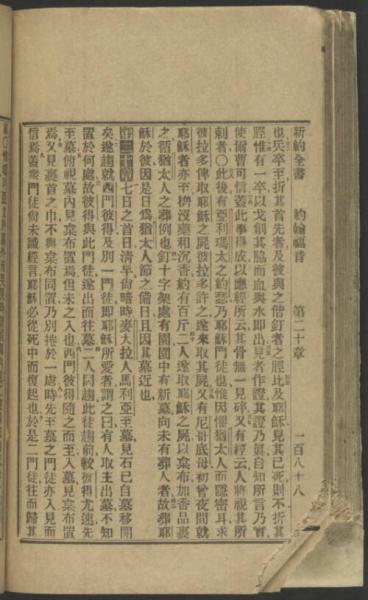 新約全書　約翰福音　第二十章　一百八十八
也兵卒至折其首先者及彼與之偕釘者之脛比及耶穌見其已死則不折其
脛惟有一卒以戈刺其脇而血與水卽出見者作證其證乃眞自知所言乃實
使爾曹可信蓋此事得成以應經所云其骨無一見碎又有經云人將視其所
刺者〇此後有亞利瑪太之約瑟乃耶穌門徒也惟因懼猶太人而隱密耳求
彼拉多俾取耶穌之屍彼拉多許之遂來取其屍又有尼哥底母初曾夜間就
耶穌者亦至攜沒藥和沉香約有百斤二人遂取耶穌之屍以枲布加香品裹
之循猶太人之葬例也釘十字架處有園園中有新墓向未有葬人者故葬耶
穌於彼因是日爲猶太人節之備日且因其墓近也
第二十章七日之首日清早尙暗時麥大拉人馬利亞至墓見石已自墓移開
矣遂趨就西門彼得及別一門徒卽耶穌所愛者謂之曰有人取主出墓不知
置於何處故彼得與此門徒遂出而往墓二人同趨此徒趨前較彼得尤速先
至墓俯視墓內見枲布置焉但未之入也西門彼得隨之而至入墓見枲布置
焉又見裹首之巾不與枲布同置乃別捲於一處時先至墓之門徒亦入見而
信焉蓋衆門徒尙未識經言耶穌必從死中而復起也於是二門徒往而歸其